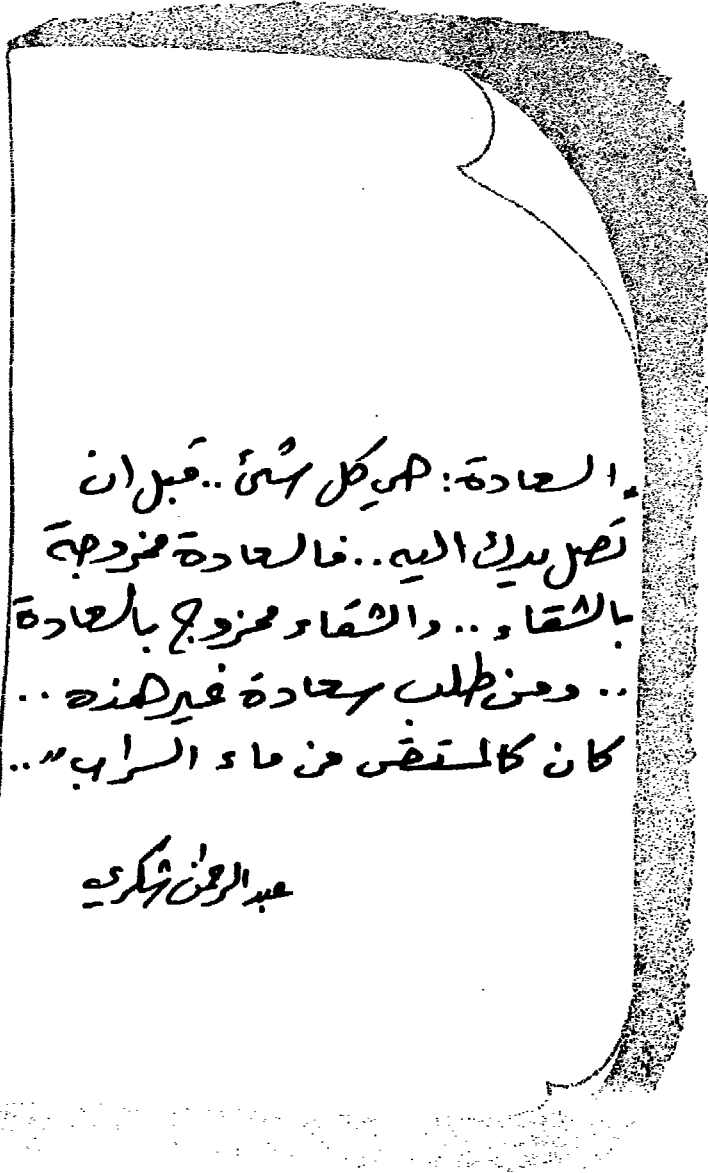 "السعادة: هي كل شئ .. قبل ان
تصل يدك اليه .. فالسعادة ممزوجة
بالشقاء .. والشقاء ممزوج بالسعادة
.. ومن طلب سعادة غير هذه ..
كان كالمستقى من ماء السراب" ..
عبدالرحمن شكري